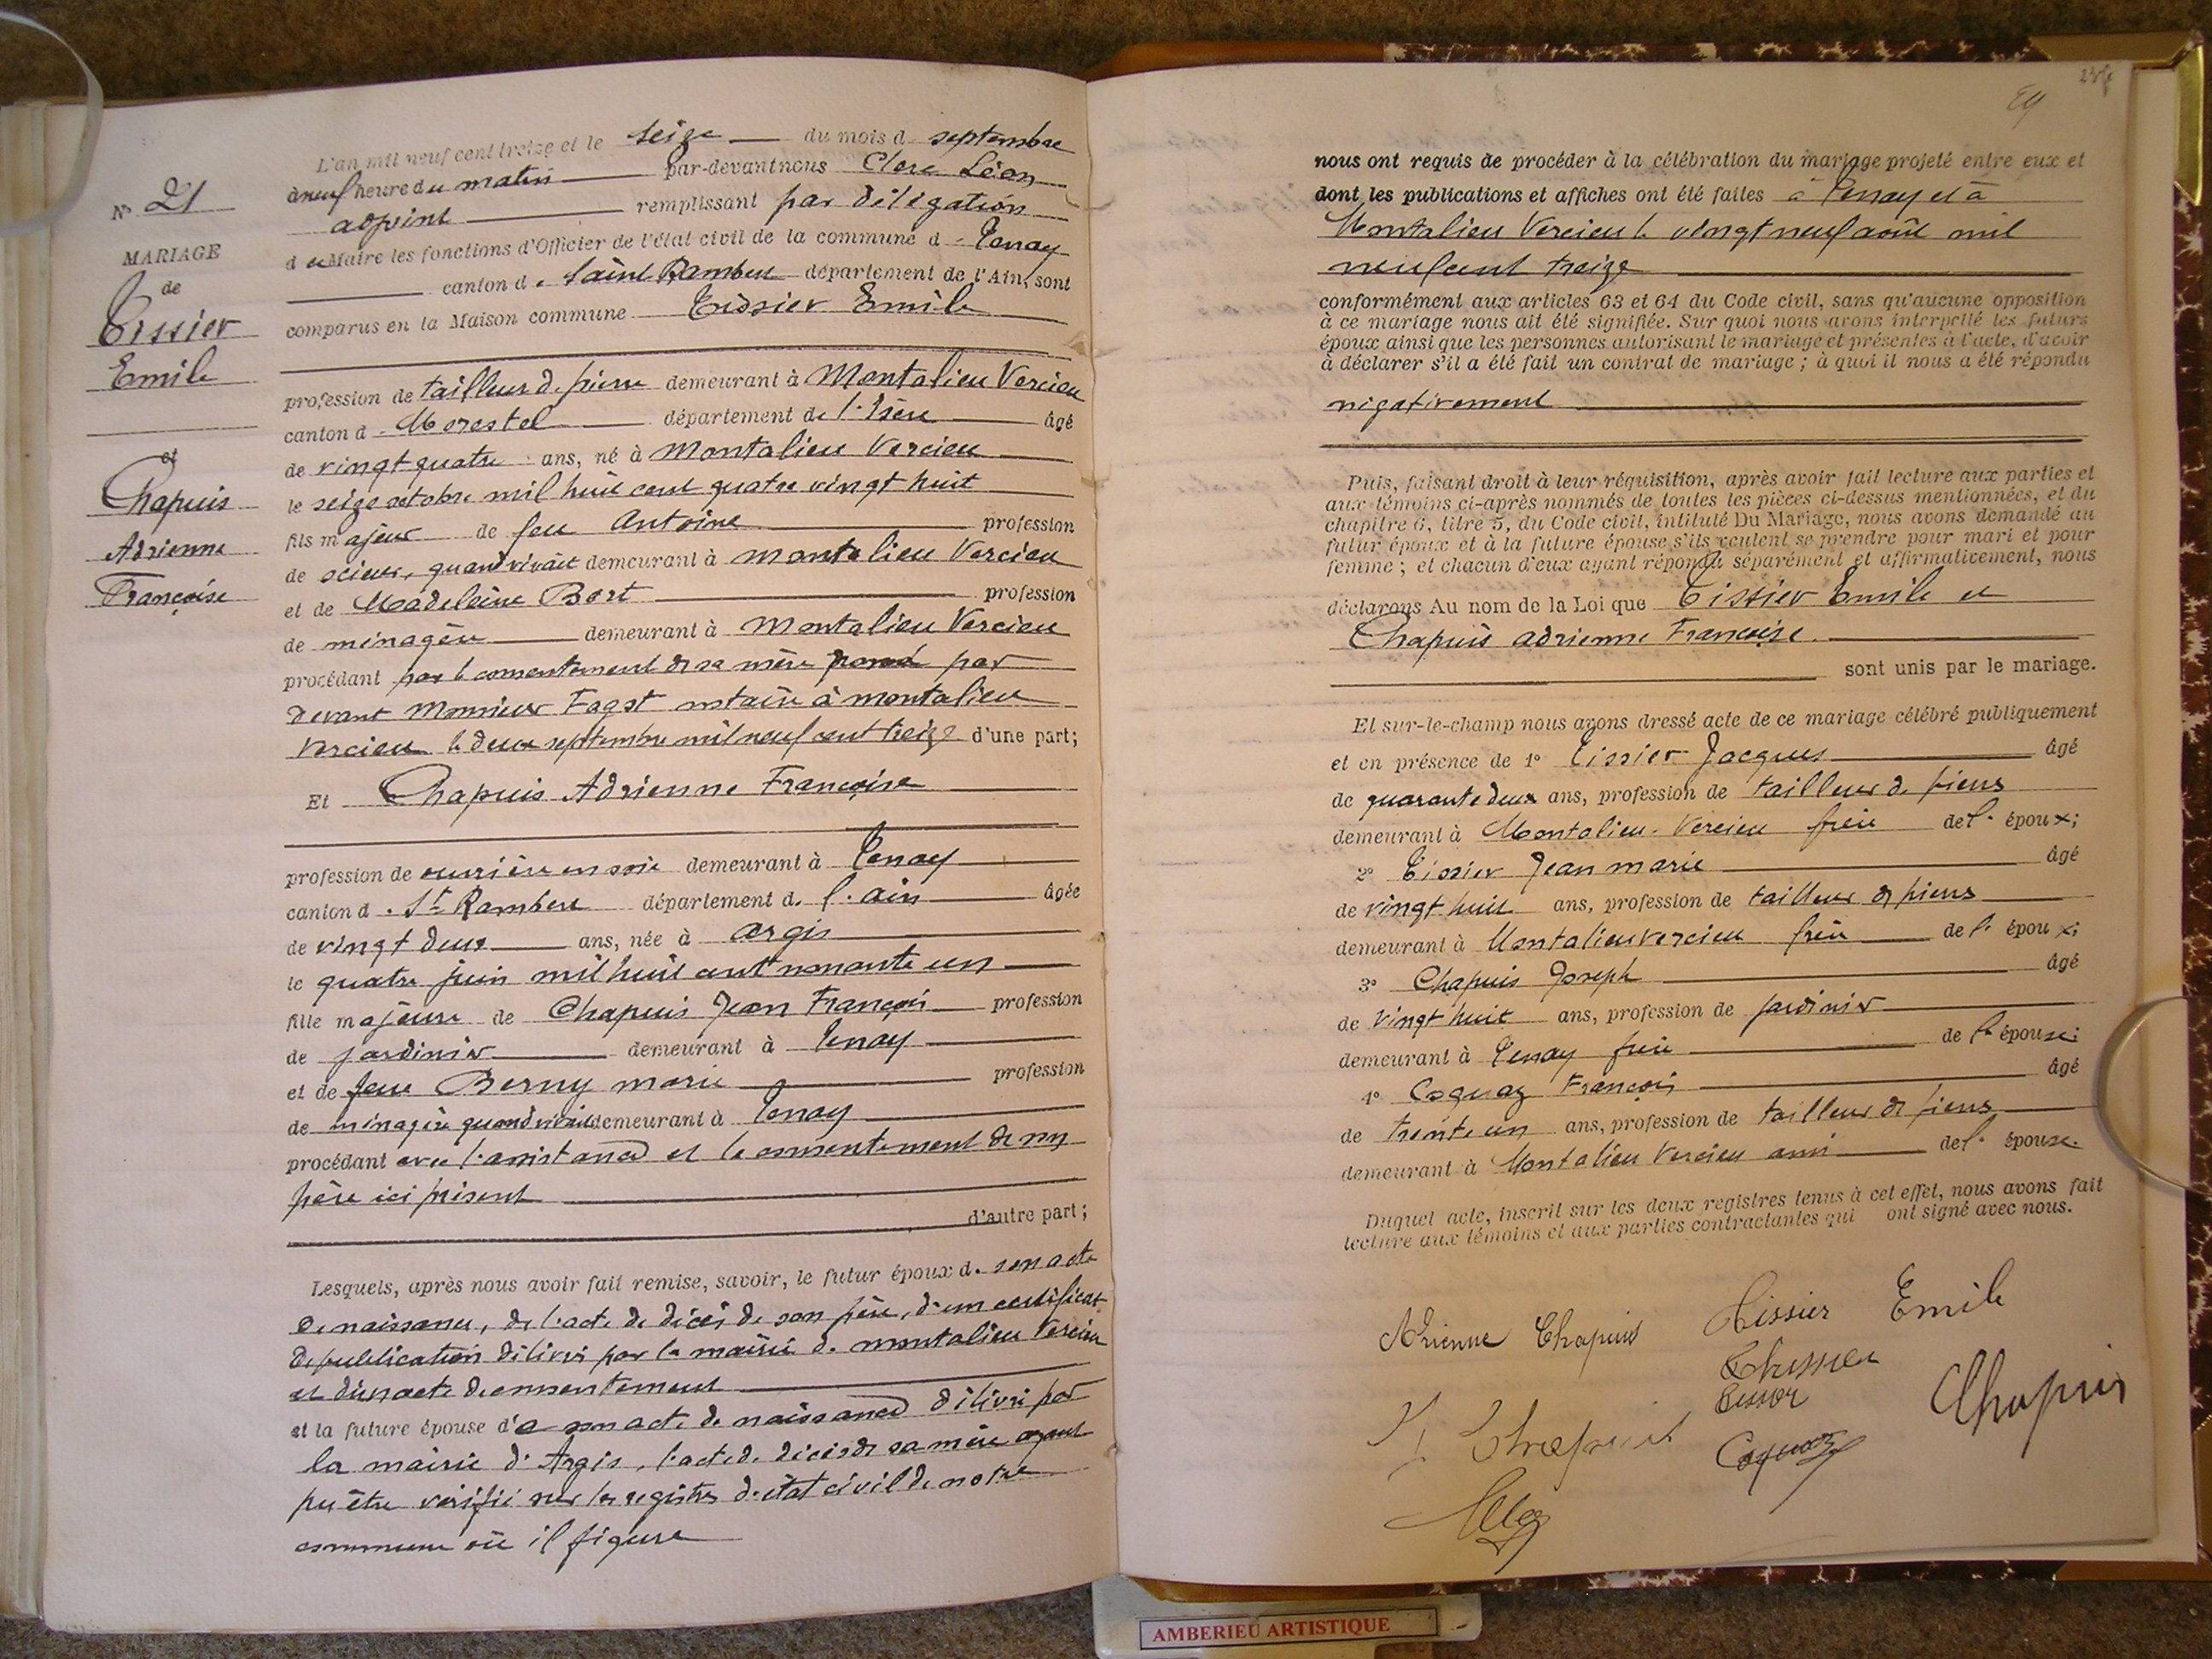 L'an mil neuf cent treize et le seize du mois d septembre
à neuf heure du matin par-devant nous Clerc Léon
adjoint remplissant par délégation
d u Maire les fonctions d'Officier de l'état civil de la commune d e Tenay
canton d e Saint Rambert département de l'Ain, sont
comparus en la Maison commune Tissier Emile
profession de tailleur de pierre demeurant à Montalieu Vercieu
canton d e Morestel département de l'Isère âgé
de vingt quatre ans, né à Montalieu Vercieu
le seize octobre mil huit cent quatre vingt huit
fils majeur de feu Antoine profession
de scieur, quand vivait demeurant à Montalieu Vercieu
et de Madeleine Bort profession
de ménagère demeurant à Montalieu Vercieu
procédant par le consentement de sa mère par
devant Monsieur Fagot notaire à Montalieu
Vercieu le deux septembre mil neuf cent treize d'une part;
Et Chapuis Adrienne Françoise
profession de ouvrière en soie demeurant à Tenay
canton d e St Rambert département de l'ain âgée
de vingt deux ans, née à Argis
le quatre juin mil huit cent nonante un
fille majeure de Chapuis Jean François profession
de jardinier demeurant à Tenay
et de feue Berny marie profession
de ménagère quand vivait demeurant à Tenay
procédant avec l'assistance et le consentement de son
père ici présent
d'autre part;
Lesquels, après nous avoir fait remise, savoir, le futur époux de son acte
de naissance, de l'acte de décès de son père, d'un certificat
de publication délivré par la mairie de montalieu Vercieu
et d'un acte de consentement
et la future épouse d e son acte de naissance délivré par
la mairie d'Argis, l'acte de décès de sa mère ayant
pu être vérifié sur les registres d'état civil de notre
commune où il figure
N° 21
MARIAGE
de
Tissier
Emile
et
Chapuis
Adrienne
Françoise
nous ont requis de procéder à la célébration du mariage projeté entre eux et
dont les publications et affiches ont été faites à Tenay et à
Montalieu Vercieu le vingt neuf août mil
neuf cent treize
conformément aux articles 63 et 64 du Code civil, sans qu'aucune opposition
à ce mariage nous ait été signifiée. Sur quoi nous avons interpellé les futurs
époux ainsi que les personnes autorisant le mariage et présentes à l'acte, d'avoir
à déclarer s'il a été fait un contrat de mariage ; à quoi il nous a été répondu
négativement
Puis, faisant droit à leur réquisition, après avoir fait lecture aux parties et
aux témoins ci-après nommés de toutes les pièces ci-dessus mentionnées, et du
chapitre 6, titre 5, du Code civil, intitulé Du Mariage, nous avons demandé au
futur époux et à la future épouse s'ils veulent se prendre pour mari et pour
femme ; et chacun d'eux ayant répondu séparément et affirmativement, nous
déclarons Au nom de la Loi que Tissier Emile et
Chapuis adrienne Françoise
sont unis par le mariage.
Et sur-le-champ nous avons dressé acte de ce mariage célébré publiquement
et en présence de 1° Tissier Jacques âgé
de quarante deux ans, profession de tailleur de pierre
demeurant à Montalieu-Vercieu frère de l' époux;
2° Tissier Jean marie âgé
de vingt huit ans, profession de tailleur de pierre
demeurant à Montalieu vercieu frère de l' époux;
3° Chapuis Joseph âgé
de vingt huit ans, profession de jardinier
demeurant à Tenay frère de l' épouse;
4° Coquaz François âgé
de trente un ans, profession de tailleur de pierre
demeurant à Montalieu Vercieu ami de l' épouse.
Duquel acte, inscrit sur les deux registres tenus à cet effet, nous avons fait
lecture aux témoins et aux parties contractantes qui ont signé avec nous.
Adrienne Chapuis Tissier Emile
Tissier
Chapuis
Coquaz
AMBERIEU ARTISTIQUE